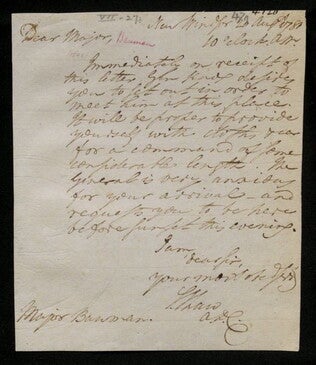 VII-27
4120
New Windsor Augt 1781
Dear Major, Bauman
10 o'Clock, A.M.
Immediately on receipt of
this letter, Genl Knox desires
you to set out in order to
meet him at this place.
It will be proper to provide
yourself with cloths &ca
for a command of some
considerable length. The
General is very anxious
for your arrival—and
requests you to be here
before sunset this evening.
I am,
dear sir,
your most obt
S Shaw
ADC
Major Bauman.